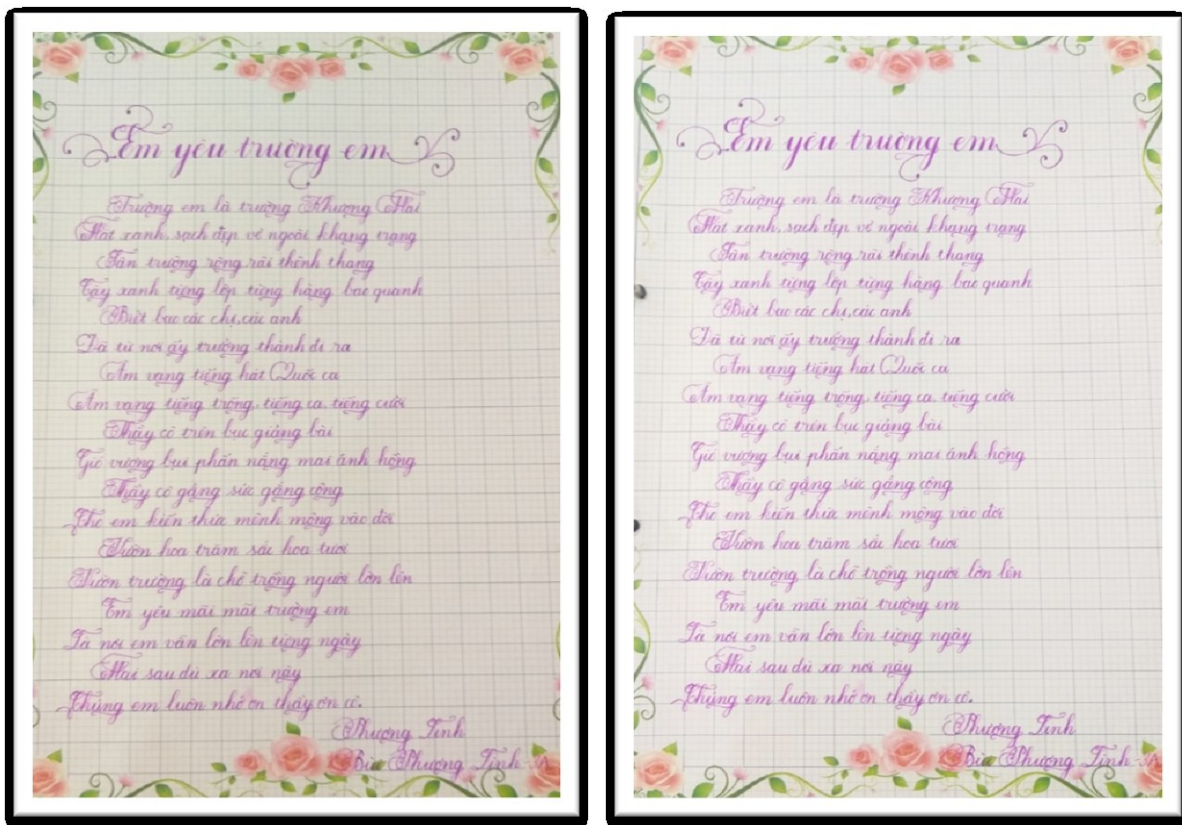 Em yêu trường em
Trường em là trường Khương Mai
Mát xanh, sạch đẹp vẻ ngoài khang trang
Sân trường rộng rãi thênh thang
Cây xanh từng lớp từng hàng bao quanh
Biết bao các chị, các anh
Đã từ nơi ấy trưởng thành đi ra
Âm vang tiếng hát Quốc ca
Âm vang tiếng trống, tiếng ca, tiếng cười
Thầy cô trên bục giảng bài
Gió vương bụi phấn nắng mai ánh hồng
Thầy cô gắng sức gắng công
Cho em kiến thức mênh mông vào đời
Vườn hoa trăm sắc hoa tươi
Vườn trường là chỗ trồng người lớn lên
Em yêu mãi mãi trường em
Là nơi em vẫn lớn lên từng ngày
Mai sau dù xa nơi này
Chúng em luôn nhớ ơn thầy ơn cô.
Phương Linh
Bùi Phương Linh
Em yêu trường em
Trường em là trường Khương Mai
Mát xanh, sạch đẹp vẻ ngoài khang trang
Sân trường rộng rãi thênh thang
Cây xanh từng lớp từng hàng bao quanh
Biết bao các chị, các anh
Đã từ nơi ấy trưởng thành đi ra
Âm vang tiếng hát Quốc ca
Âm vang tiếng trống, tiếng ca, tiếng cười
Thầy cô trên bục giảng bài
Gió vương bụi phấn nắng mai ánh hồng
Thầy cô gắng sức gắng công
Cho em kiến thức mênh mông vào đời
Vườn hoa trăm sắc hoa tươi
Vườn trường là chỗ trồng người lớn lên
Em yêu mãi mãi trường em
Là nơi em vẫn lớn lên từng ngày
Mai sau dù xa nơi này
Chúng em luôn nhớ ơn thầy ơn cô.
Phương Linh
Bùi Phương Linh